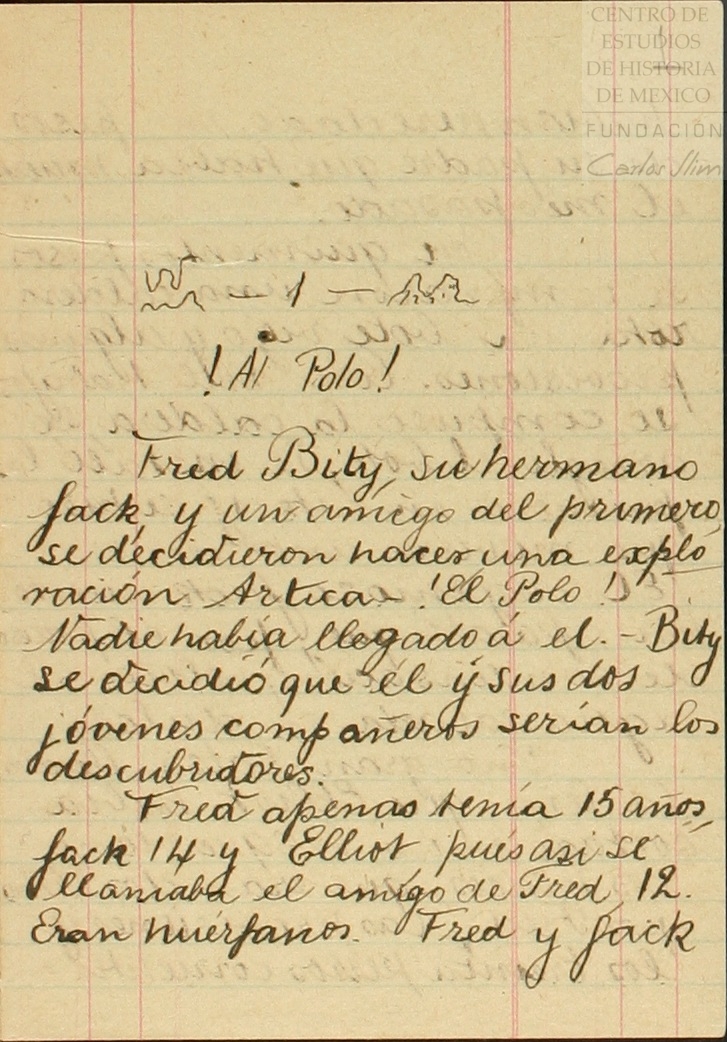 CENTRO DE
ESTUDIOS
DE HISTORIA
DE MEXICO
FUNDACIÓN
Carlos Slim
1
— 1 —
!Al Polo!
Fred Bity, su hermano
Jack, y un amigo del primero,
se decidieron hacer una explo
ración Artica— !El Polo!
Nadie había llegado á el. - Bity
se decidió que él y sus dos
jóvenes compañeros serían los
descubridores.
Fred apenas tenía 15 años,
Jack 14 y Elliot pués asi se
llamaba el amigo de Fred, 12.
Eran huérfanos. Fred y Jack